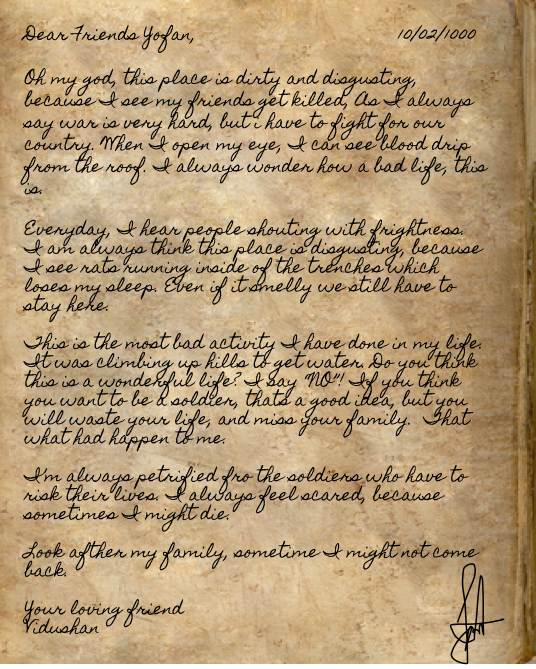 Dear Friends Yofan,
10/02/1000
Oh my god, this place is dirty and disgusting,
because I see my friends get killed, As I always
say war is very hard, but i have to fight for our
country. When I open my eye, I can see blood drip
from the roof. I always wonder how a bad life, this
is.
Everyday, I hear people shouting with frightness.
I am always think this place is disgusting, because
I see rats running inside of the trenches which
loses my sleep. Even if it smelly we still have to
stay here.
This is the most bad activity I have done in my life.
It was climbing up hills to get water. Do you think
this is a wonderful life? I say "NO"! If you think
you want to be a soldier, thats a good idea, but you
will waste your life, and miss your family. That
what had happen to me.
I'm always petrified fro the soldiers who have to
risk their lives. I always feel scared, because
sometimes I might die.
Look afther my family, sometime I might not come
back.
Your loving friend
Vidushan